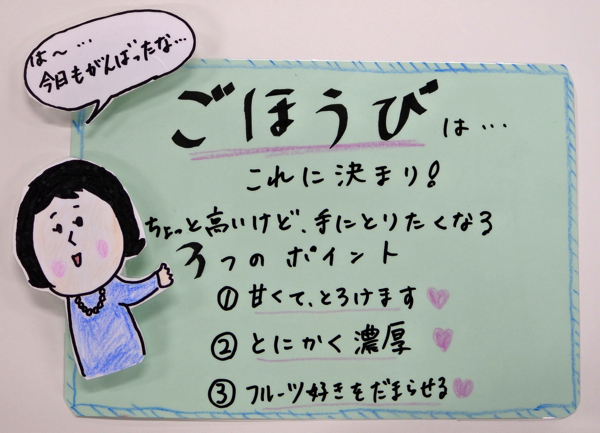 は〜…
今日もがんばったな…
ごほうびは…
これに決まり!
ちょっと高いけど、手にとりたくなる
3つのポイント
① 甘くて、とろけます
② とにかく濃厚
③ フルーツ好きをだまらせる